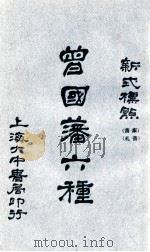 新式標點
家書
書札
曾國藩六種
上海大中書局印行